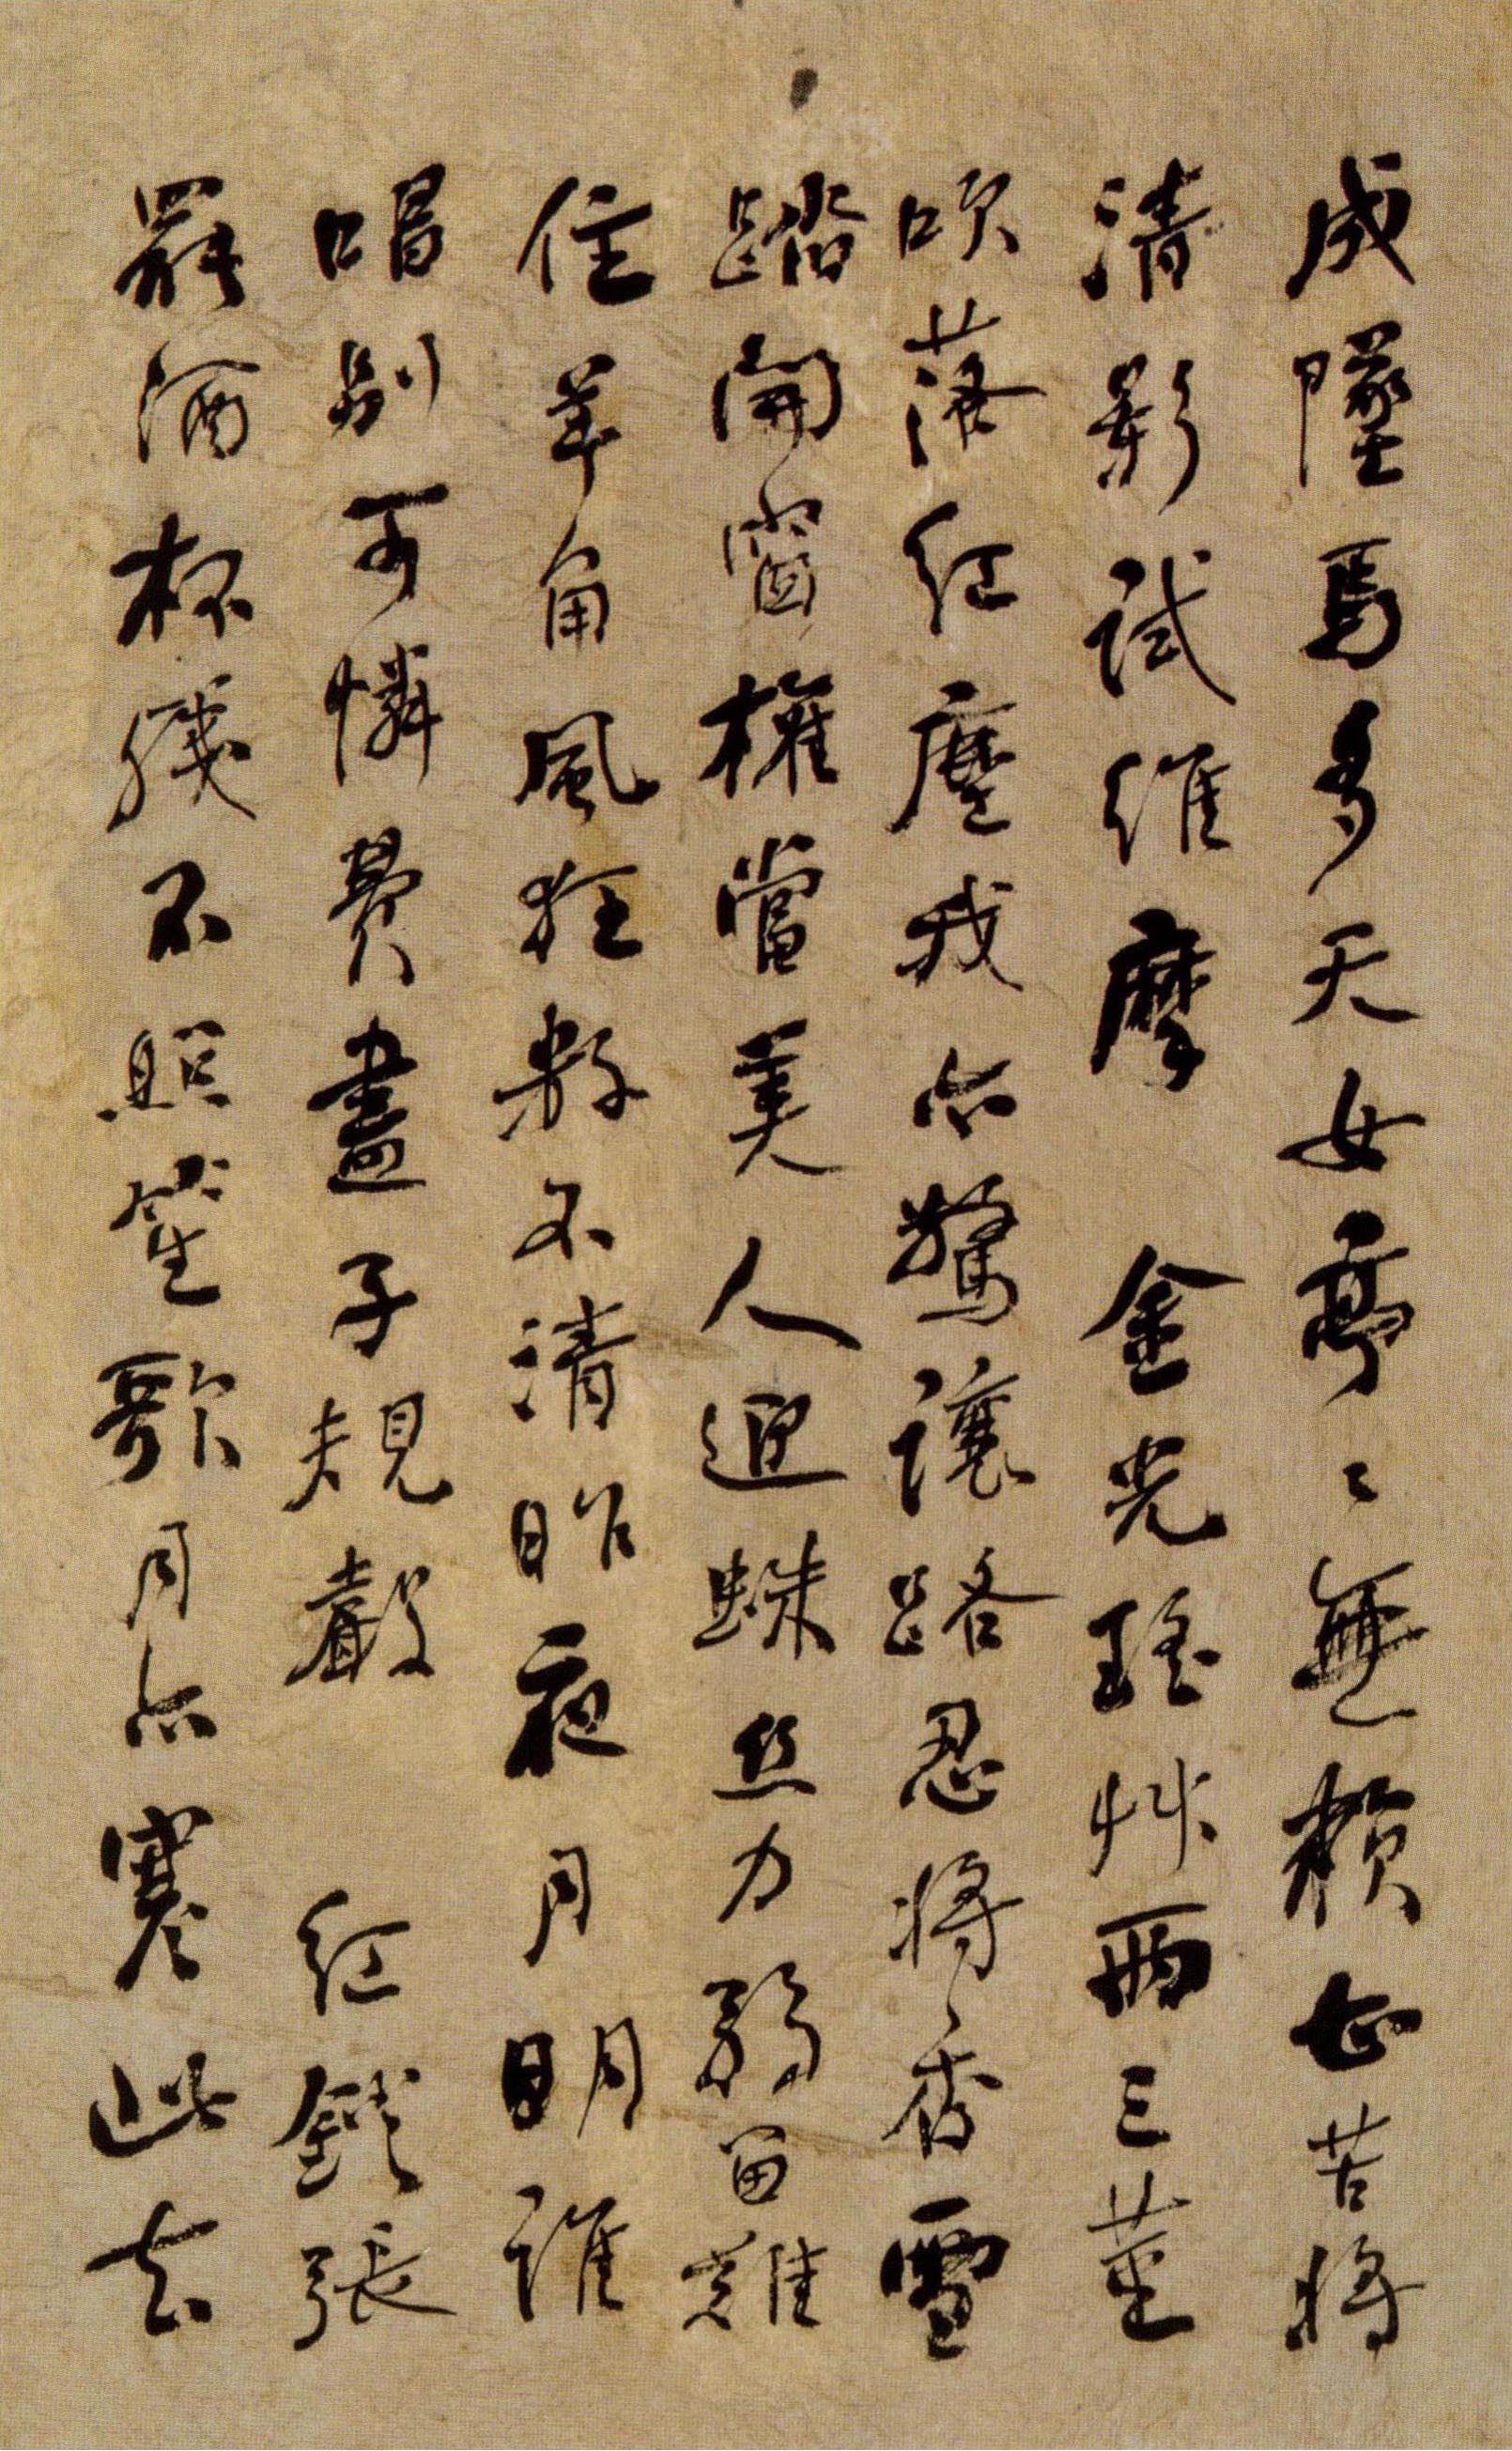 成墜馬多天女亭〻無賴甚苦將
清影試維摩　金光瑤艸兩三莖
吹落紅塵我亦驚讓路忍將香雪
踏開窗權當美人迎蛛絲力弱留難
住羊角風狂數不清昨夜月明誰
唱別可憐費盡子規聲　紅鐙張
罷酒杯殘不照笙歌月亦寒此去